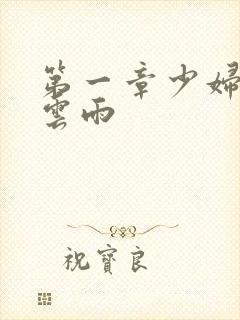 第一章少婦
雲雨
祝寶良